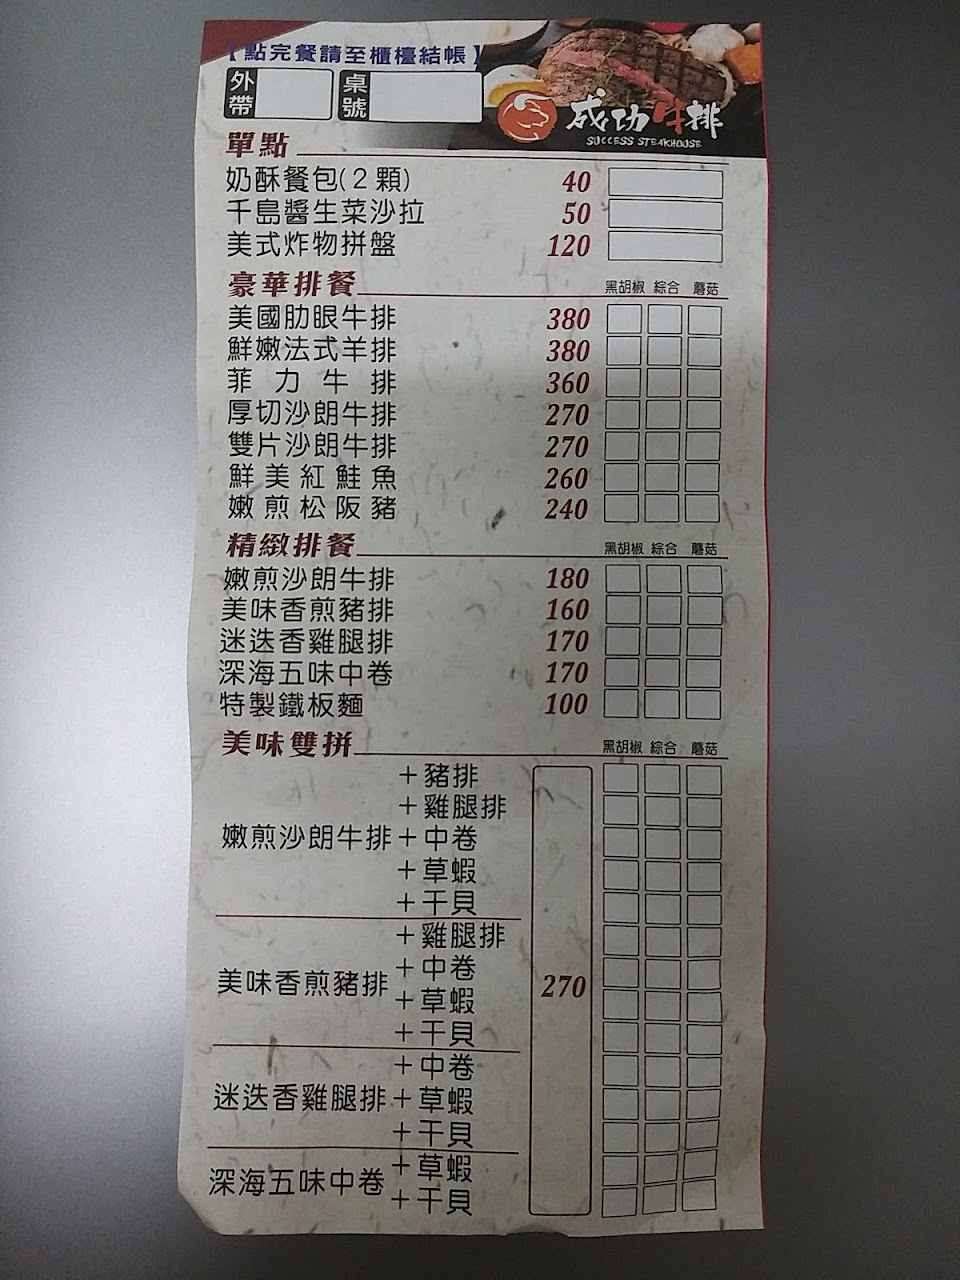 【點完餐請至櫃檯結帳】
外帶
桌號
成功牛排
SUCCESS STEAKHOUSE
單點
奶酥餐包(2顆) 40
千島醬生菜沙拉 50
美式炸物拼盤 120
豪華排餐 黑胡椒 綜合 蘑菇
美國肋眼牛排 380
鮮嫩法式羊排 380
菲力牛排 360
厚切沙朗牛排 270
雙片沙朗牛排 270
鮮美紅鮭魚 260
嫩煎松阪豬 240
精緻排餐 黑胡椒 綜合 蘑菇
嫩煎沙朗牛排 180
美味香煎豬排 160
迷迭香雞腿排 170
深海五味中卷 170
特製鐵板麵 100
美味雙拼 黑胡椒 綜合 蘑菇
嫩煎沙朗牛排
+豬排
+雞腿排
+中卷
+草蝦
+干貝
美味香煎豬排
+雞腿排
+中卷
+草蝦
+干貝
270
迷迭香雞腿排
+中卷
+草蝦
+干貝
深海五味中卷
+草蝦
+干貝